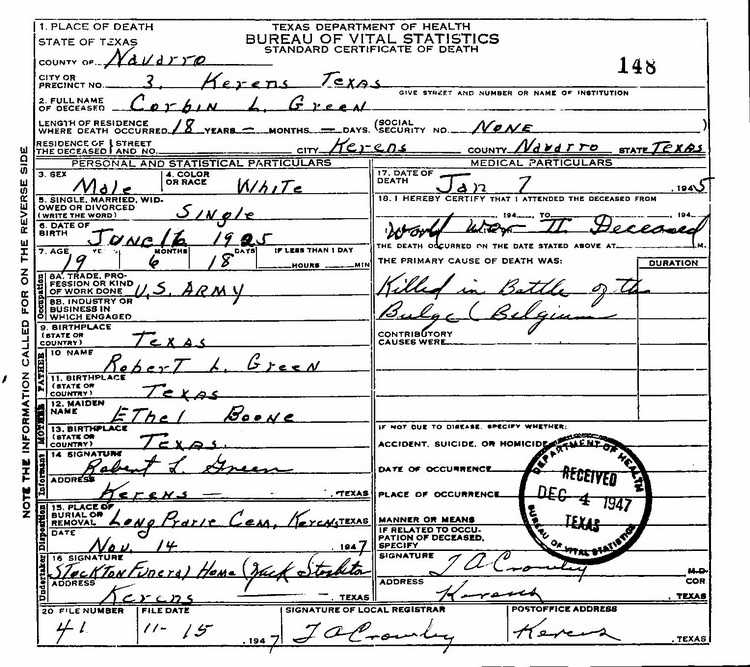 1. PLACE OF DEATH
STATE OF TEXAS
TEXAS DEPARTMENT OF HEALTH
BUREAU OF VITAL STATISTICS
STANDARD CERTIFICATE OF DEATH
COUNTY OF Navarro
148
CITY OR PRECINCT NO. 3. Kerens Texas
GIVE STREET AND NUMBER OR NAME OF INSTITUTION
2. FULL NAME OF DECEASED Corbin L. Green
LENGTH OF RESIDENCE WHERE DEATH OCCURRED 18 YEARS — MONTHS — DAYS. (SOCIAL SECURITY NO. NONE )
RESIDENCE OF THE DECEASED } STREET AND NO. CITY Kerens COUNTY Navarro STATE Texas
PERSONAL AND STATISTICAL PARTICULARS
3. SEX Male
4. COLOR OR RACE White
5. SINGLE, MARRIED, WIDOWED OR DIVORCED (WRITE THE WORD) Single
6. DATE OF BIRTH June 16 1925
7. AGE 19 YEARS 6 MONTHS 18 DAYS IF LESS THAN 1 DAY HOURS MIN
Occupation
8A. TRADE, PROFESSION OR KIND OF WORK DONE U.S. ARMY
8B. INDUSTRY OR BUSINESS IN WHICH ENGAGED
9. BIRTHPLACE (STATE OR COUNTRY) Texas
FATHER
10 NAME Robert L. Green
11. BIRTHPLACE (STATE OR COUNTRY) Texas
MOTHER
12. MAIDEN NAME Ethel Boone
13. BIRTHPLACE (STATE OR COUNTRY) Texas.
Informant
14 SIGNATURE Robert L. Green
ADDRESS Kerens — , TEXAS
Disposition
15. PLACE OF BURIAL OR REMOVAL Long Prarie Cem, Kerens TEXAS
DATE Nov. 14 1947
Undertaker
16 SIGNATURE Stockton Funeral Home (Jack Stockton
ADDRESS Kerens — , TEXAS
MEDICAL PARTICULARS
17. DATE OF DEATH Jan 7 1945
18. I HEREBY CERTIFY THAT I ATTENDED THE DECEASED FROM
194 TO 194
World War II Deceased
THE DEATH OCCURRED ON THE DATE STATED ABOVE AT M.
THE PRIMARY CAUSE OF DEATH WAS:
DURATION
Killed in Battle of the
Bulge (Belgium
CONTRIBUTORY CAUSES WERE
IF NOT DUE TO DISEASE, SPECIFY WHETHER:
ACCIDENT, SUICIDE, OR HOMICIDE
DATE OF OCCURRENCE
PLACE OF OCCURRENCE
MANNER OR MEANS
IF RELATED TO OCCUPATION OF DECEASED, SPECIFY
DEPARTMENT OF HEALTH
RECEIVED
DEC 4 1947
TEXAS
BUREAU OF VITAL STATISTICS
SIGNATURE T A Crowley M.D.
COR
ADDRESS Kerens , TEXAS
20 FILE NUMBER 41
FILE DATE 11-15 , 1947
SIGNATURE OF LOCAL REGISTRAR T A Crowley
POSTOFFICE ADDRESS Kerens
NOTE THE INFORMATION CALLED FOR ON THE REVERSE SIDE